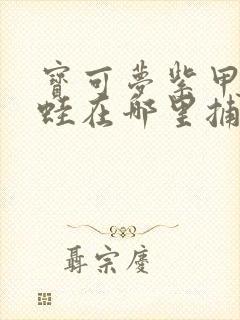 寶可夢紫甲
蛙在哪里捕
聶宗慶